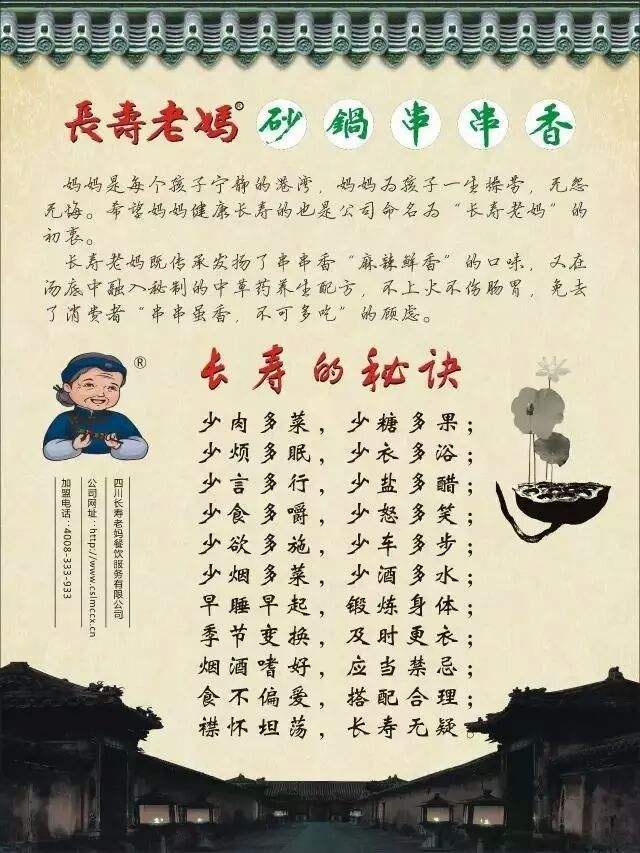 長壽老媽® 砂鍋串串香
妈妈是每个孩子宁静的港湾，妈妈为孩子一生操劳，无怨
无悔。希望妈妈健康长寿的也是公司命名为“长寿老妈”的
初衷。
长寿老妈既传承发扬了串串香“麻辣鲜香”的口味，又在
汤底中融入秘制的中草药养生配方，不上火不伤肠胃，免去
了消费者“串串虽香，不可多吃”的顾虑。
®
长寿的秘诀
少肉多菜，少糖多果；
少烦多眠，少衣多浴；
少言多行，少盐多醋；
少食多嚼，少怒多笑；
少欲多施，少车多步；
少烟多菜，少酒多水；
早睡早起，锻炼身体；
季节变换，及时更衣；
烟酒嗜好，应当禁忌；
食不偏爱，搭配合理；
襟怀坦荡，长寿无疑。
四川长寿老妈餐饮服务有限公司
公司网址：http://www.cslmccx.cn
加盟电话：4008-333-933